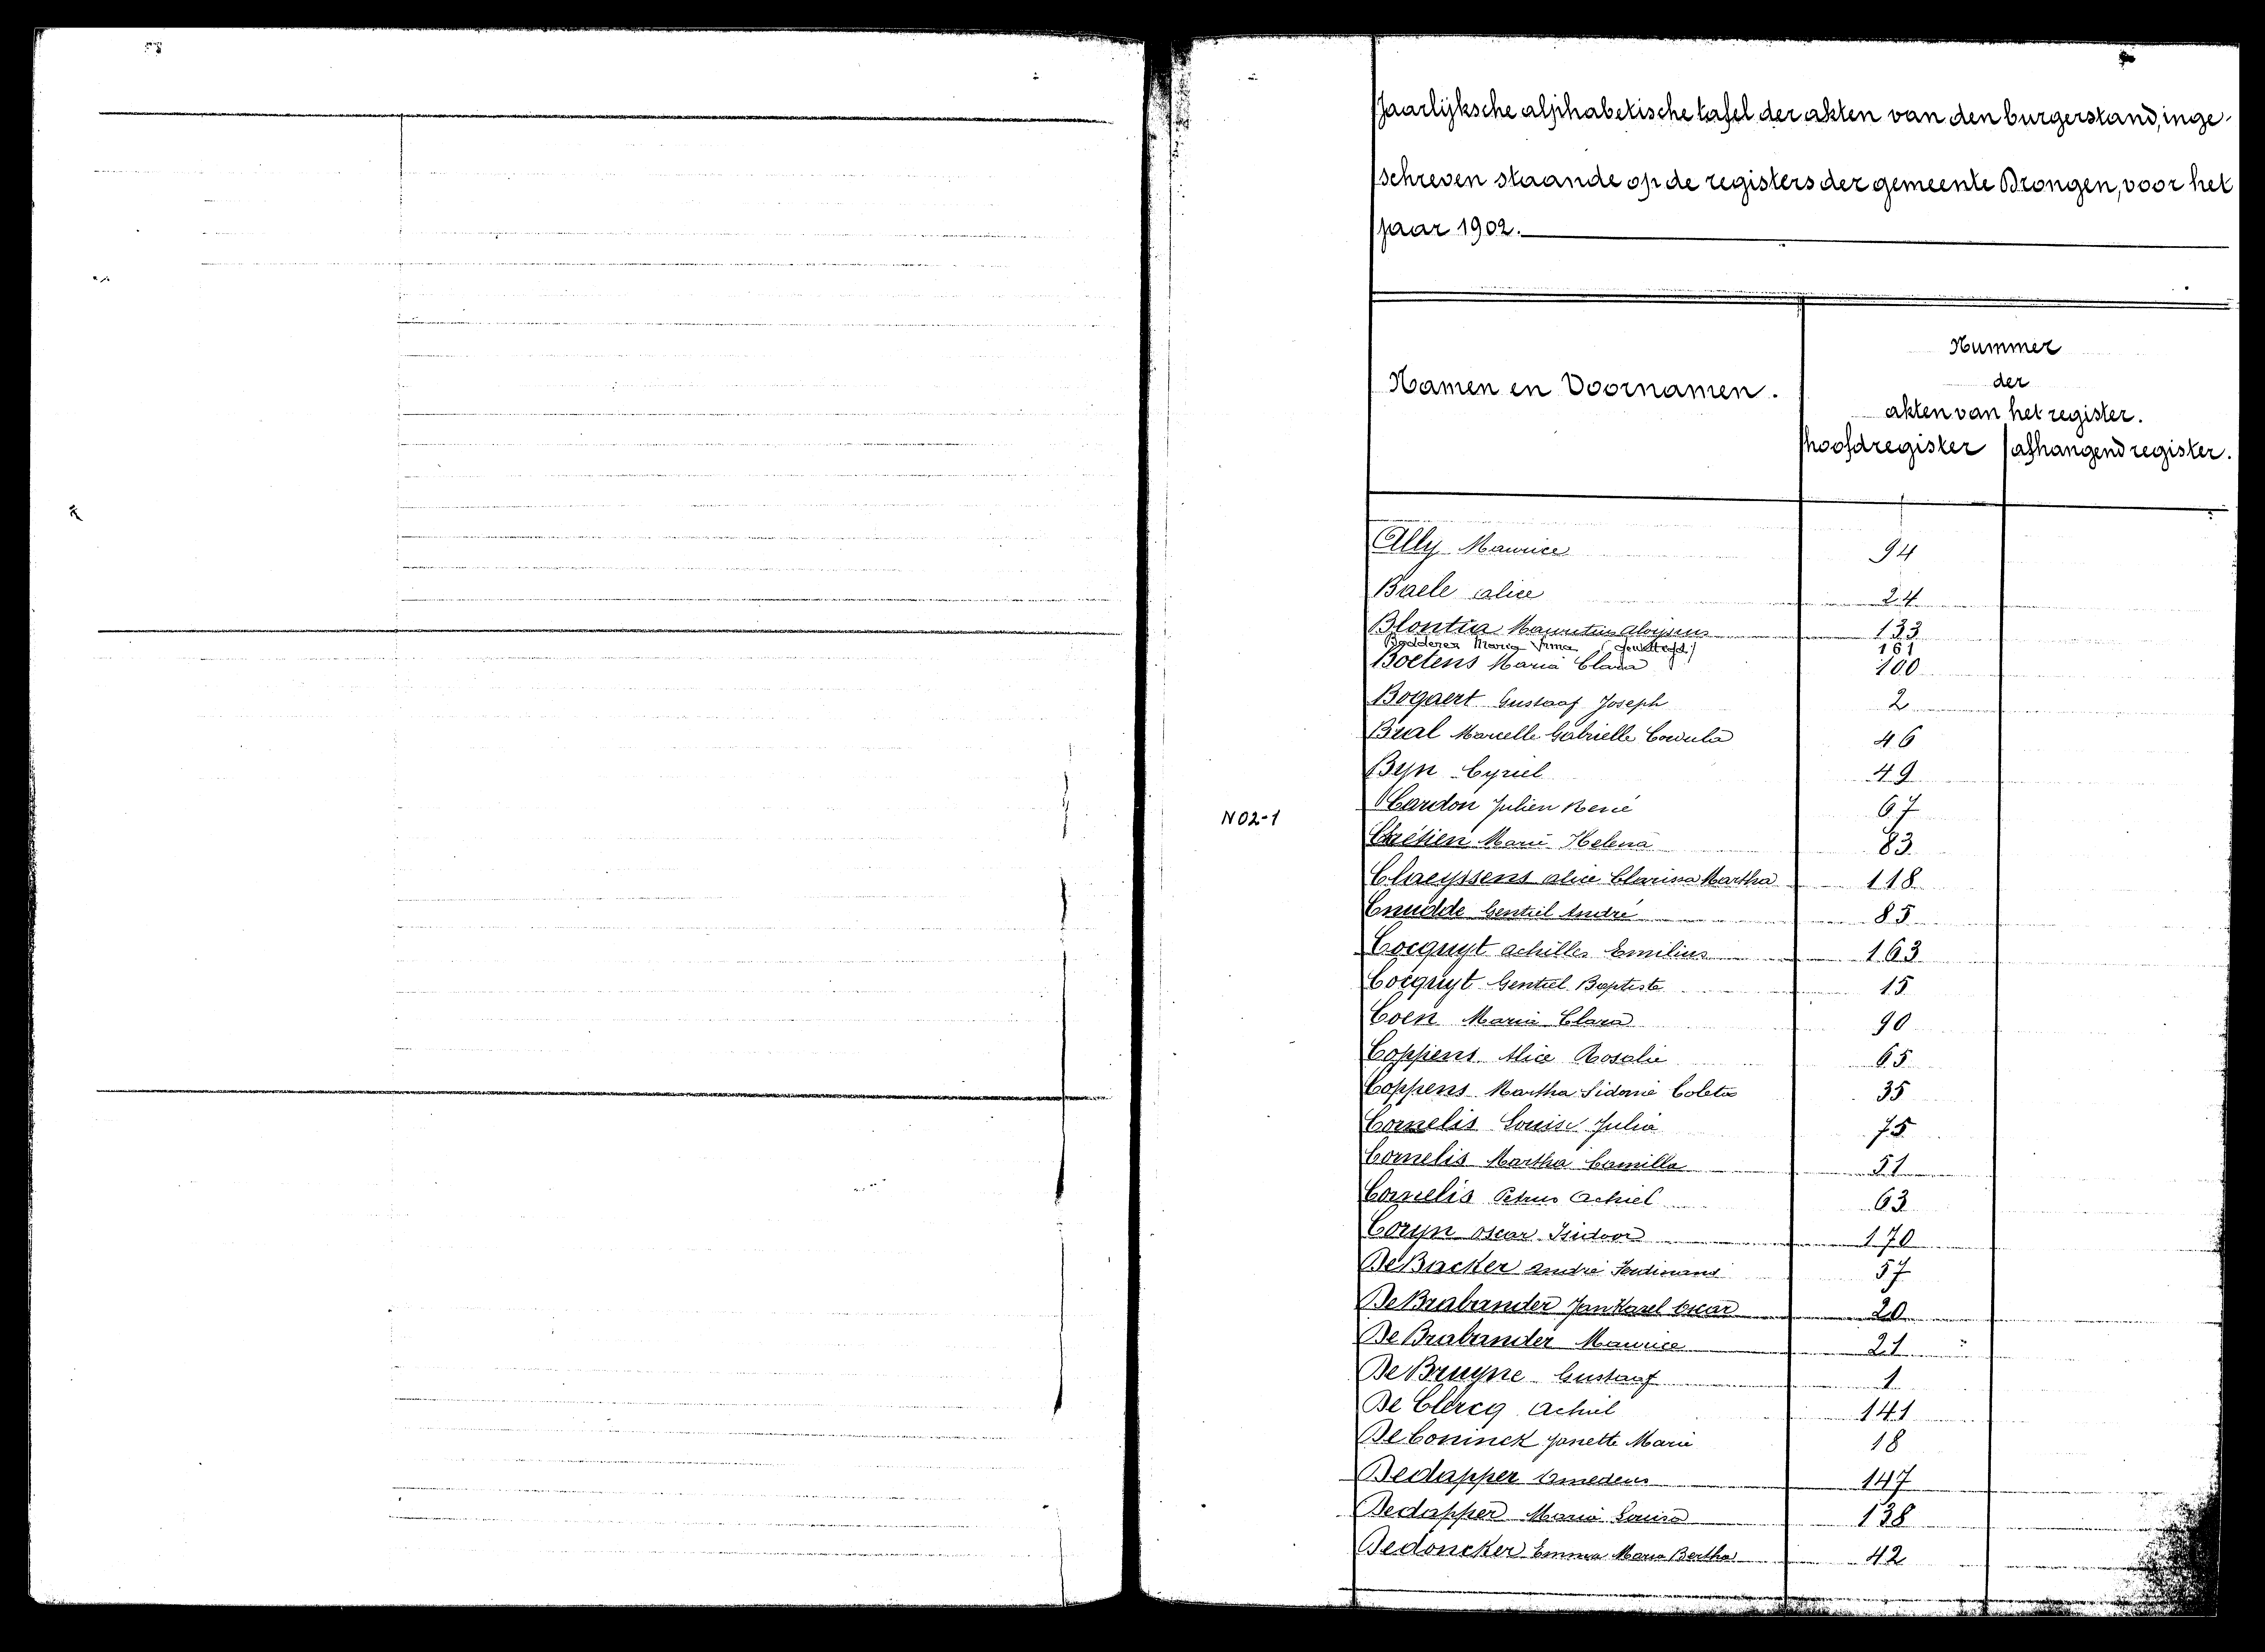 Jaarlijksche alphabetische tafel der akten van den burgerstand, inge-
schreven staande op de registers der gemeente Drongen, voor het
jaar 1902.
Namen en Voornamen.
Nummer
der
akten van het register.
hoofdregister
afhangend register.
Ally Maurice 94
Baele Alice 24
Blontia Mauritius Aloysius 133
Maria Irma 161
Boetens Maria Clara 100
Bogaert Gustaaf Joseph 2
Bral Marcelle Gabrielle Cordula 46
Byn Cyriel 49
N02-1
Cardon Julien René 67
Chrétien Marie Helena 83
Claeyssens Alice Clarissa Martha 118
Cnudde Gentiel André 85
Cocquyt Achilles Emilius 163
Cocquyt Gentiel Baptiste 15
Coen Maria Clara 90
Coppens Alice Rosalie 65
Coppens Martha Sidonie Coleta 35
Cornelis Louise Julia 75
Cornelis Martha Camilla 51
Cornelis Petrus Achiel 63
Coryn Oscar Isidoor 170
De Backer André Ferdinand 57
De Brabander Jan Karel Oscar 20
De Brabander Maurice 21
De Bruyne Gustaaf 1
De Clercq Achiel 141
De Coninck Janette Marie 18
Dedapper Amedeus 147
Dedapper Maria Louisa 138
Dedoncker Emma Maria Bertha 42